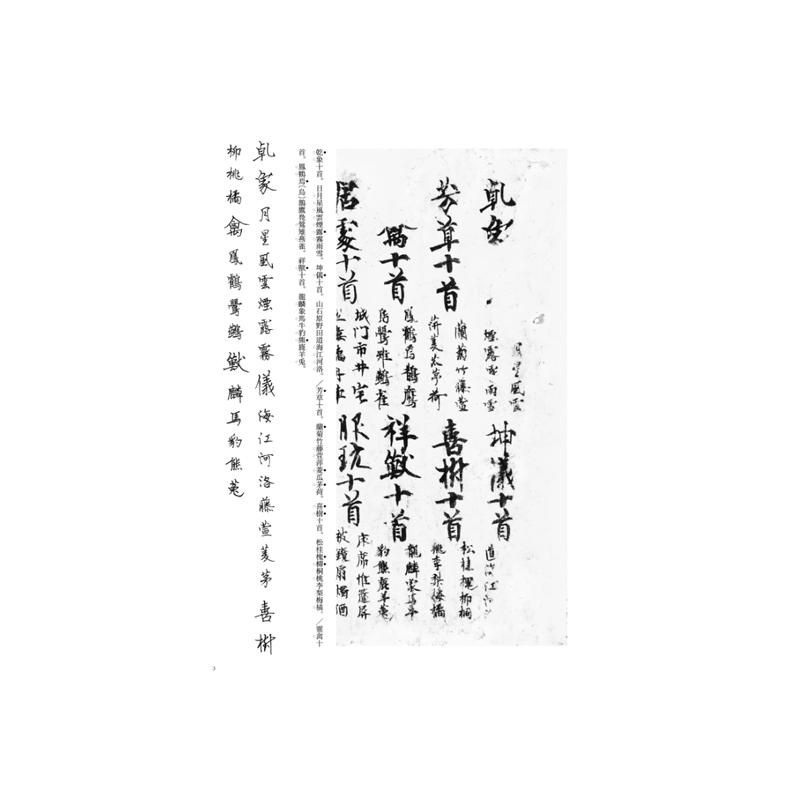 乾象
月星風雲
煙露霧雨雪
坤儀十首
道海江河
芳草十首
蘭菊竹藤萱
萍菱瓜茅荷
喜樹十首
松桂槐柳桐
桃李梨梅橘
禽十首
鳳鶴烏鵲鷹
鳧鶯雉鷰雀
祥獸十首
龍麟象馬牛
豹熊鹿羊兎
居處十首
城門市井宅
服玩十首
床席帷簾屏
被鏡扇燭酒
乾象十首。日月星風雲煙露霧雨雪。坤儀十首。山石原野田道海江河洛。／芳草十首。蘭菊竹藤萱萍菱瓜茅荷。喜樹十首。松桂槐柳桐桃李梨梅橘。／靈禽十
首。鳳鶴烏(鳥)鵲鷹鳧鶯雉燕雀。祥獸十首。龍麟象馬牛豹熊鹿羊兎。
乾象月星風雲煙露霧儀海江河洛藤萱菱茅喜樹
柳桃橘禽鳳鶴鶯鷰獸麟馬豹熊兎
3